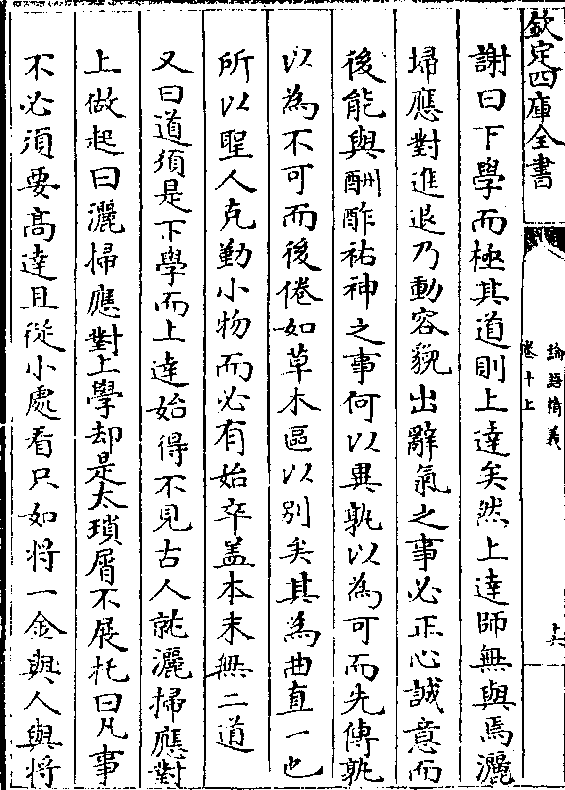 欽定四庫全書
論語精義
卷十上
謝曰下學而極其道則上達矣然上達師無與焉灑
埽應對進退乃動容貌出辭氣之事必正心誠意而
後能與酬酢祐神之事何以異孰以為可而先傳孰
以為不可而後倦如草木區以別矣其為曲直一也
所以聖人克勤小物而必有始卒盖本末無二道
又曰道須是下學而上達始得不見古人就灑掃應對
上做起曰灑掃應對上學却是太瑣屑不展托曰凡事
不必須要髙達且從小處看只如将一金與人與将